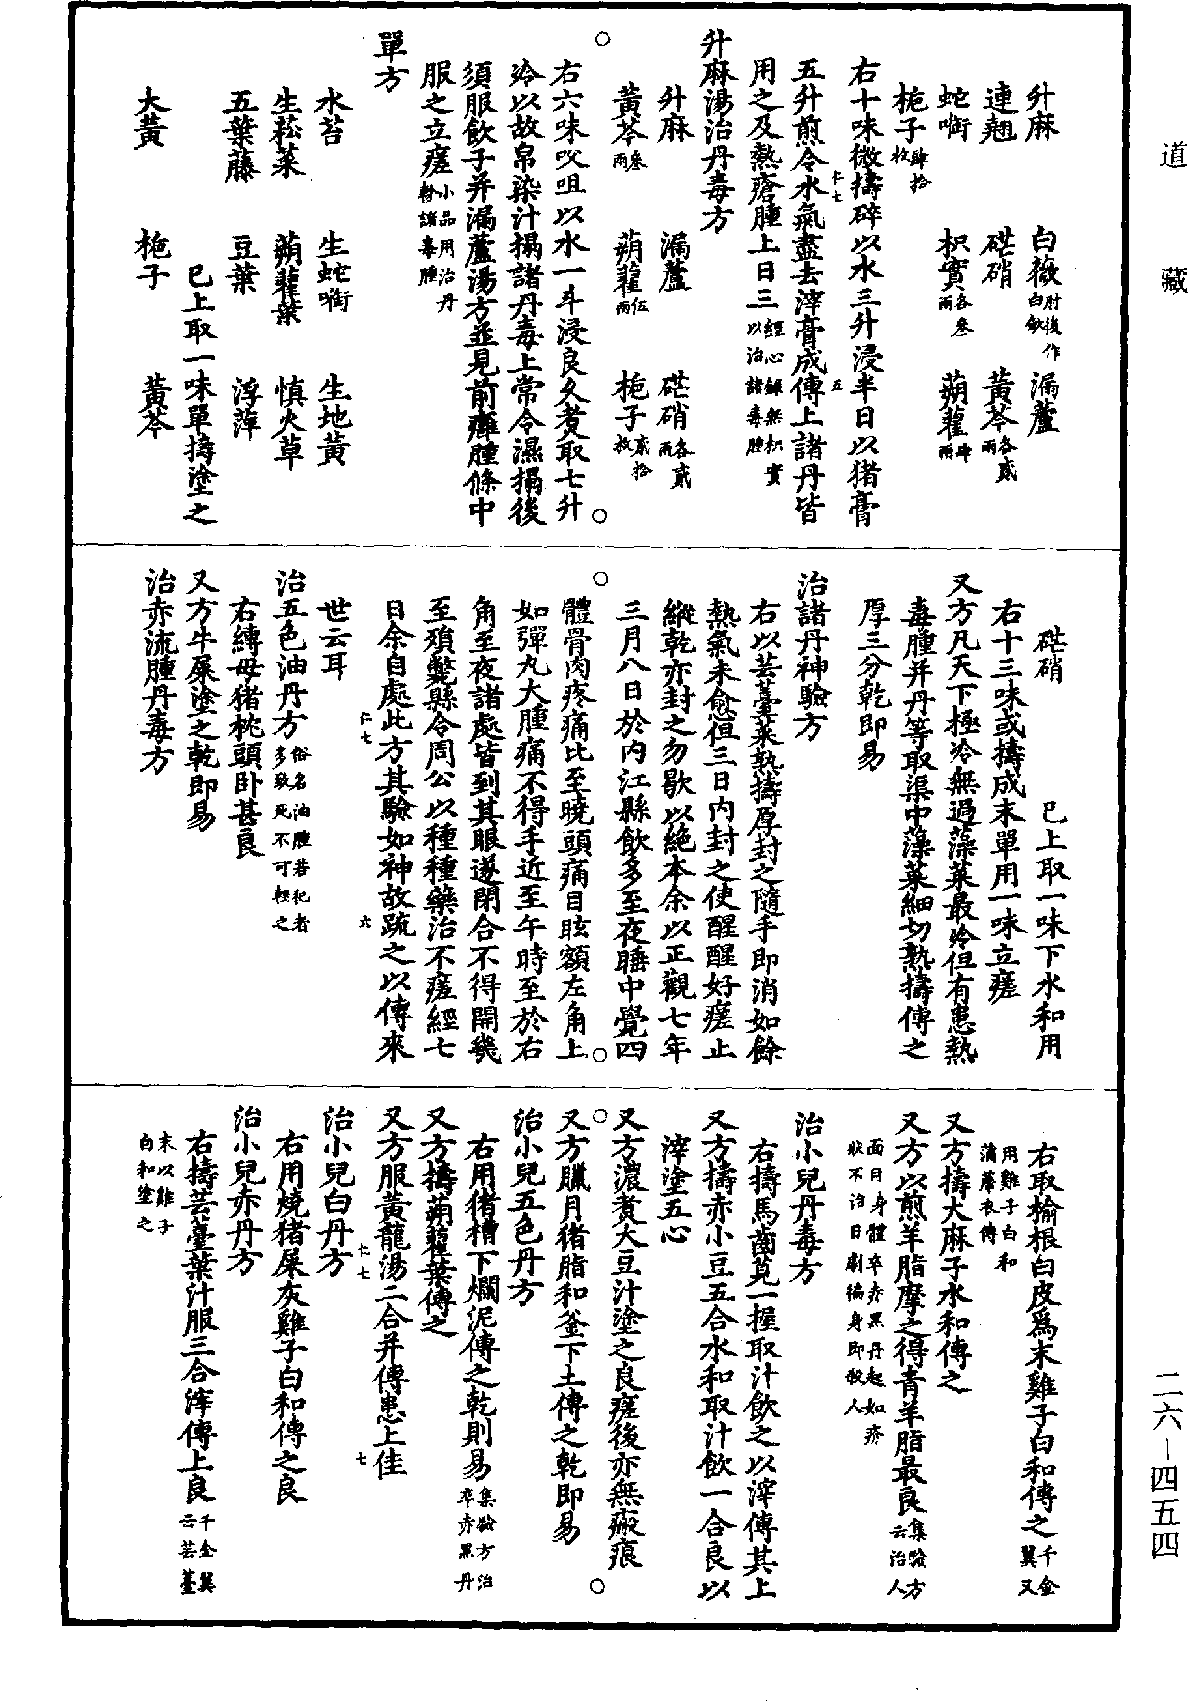 道藏
升麻　白薇肘後作白斂　漏蘆
連翹　硭硝　黃芩各貳兩
蛇啣　枳實各叁兩　蒴藋肆兩
梔子肆拾枚
右十味微擣碎以水三升浸半日以猪膏
五升煎令水氣盡去滓膏成傅上諸丹皆
用之及熱瘡腫上日三經心錄無枳實以治諸毒腫
升麻湯治丹毒方
升麻　漏蘆　硭硝各貳兩
黃芩叁兩　蒴藋伍兩　梔子貳拾枚
右六味㕮咀以水一斗浸良久煑取七升
冷以故帛染汁搨諸丹毒上常令濕搨後
須服飲子并漏蘆湯方並見前癰腫條中
服之立瘥小品用治丹疹諸毒腫
單方
水苔　生蛇啣　生地黃
生菘菜　蒴藋葉　慎火草
五葉藤　豆葉　浮萍
已上取一味單擣塗之
大黃　梔子　黃芩
仁七　五
硭硝　已上取一味下水和用
右十三味或擣成末單用一味立瘥
又方凡天下極冷無過藻菜最冷但有患熱
毒腫并丹等取渠中藻菜細切熟擣傅之
厚三分乾即易
治諸丹神驗方
右以芸薹菜熟擣厚封之隨手即消如餘
熱氣未愈但三日內封之使醒醒好瘥止
縱乾亦封之勿歇以絕本余以正觀七年
三月八日於內江縣飲多至夜睡中覺四
體骨肉疼痛比至曉頭痛目眩額左角上
如彈丸大腫痛不得手近至午時至於右
角至夜諸處皆到其眼遂閉合不得開幾
至殞斃縣令周公以種種藥治不瘥經七
日余自處此方其驗如神故疏之以傳來
仁七　六
世云耳
治五色油丹方俗名油腫若犯者多致死不可輕之
右縛母猪枕頭卧甚良
又方牛屎塗之乾即易
治赤流腫丹毒方
右取榆根白皮爲末雞子白和傅之千金翼又
用雞子白和蒲蓆灰傅
又方擣大麻子水和傅之
又方以煎羊脂摩之得青羊脂最良集驗方云治人
面目身體卒赤黑丹起如疥狀不治日劇徧身即殺人
治小兒丹毒方
右擣馬齒莧一握取汁飲之以滓傅其上
又方擣赤小豆五合水和取汁飲一合良以
滓塗五心
又方濃煑大豆汁塗之良瘥後亦無瘢痕
又方臘月猪脂和釜下土傅之乾即易
治小兒五色丹方
右用猪槽下爛泥傅之乾則易集驗方治卒赤黑丹
又方擣蒴藋葉傅之
又方服黃龍湯二合并傅患上佳
仁七　七
治小兒白丹方
右用燒猪屎灰雞子白和傅之良
治小兒赤丹方
右擣芸薹葉汁服三合滓傅上良千金翼云芸薹
末以雞子白和塗之
二六—四五四